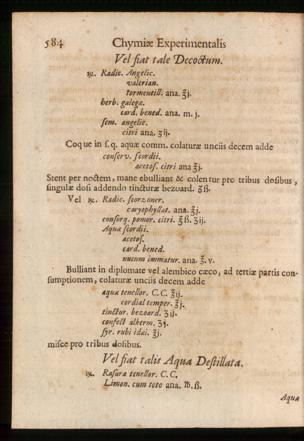 584 Chymiæ Experimentalis
Vel fiat tale Decoctum.
℞. Radic. Angelic.
valerian.
tormentill. ana. ℥j.
herb. galegæ.
card. bened. ana. m. j.
sem. angelic.
citri ana. ʒij.
Coque in s.q. aquæ comm. colaturæ unciis decem adde
conserv. scordii.
acetos. citri ana ℥j.
Stent per noctem, mane ebulliant & colentur pro tribus dosibus,
singulæ dosi addendo tincturæ bezoard. ℥ß.
Vel ℞. Radic. scorzoner.
caryophyllat. ana. ℥j.
conserq. pomor. citri. ℥ß. ʒij.
Aquæ scordii.
acetos.
card. bened.
nucum immatur. ana. ℥. v.
Bulliant in diplomate vel alembico cæco, ad tertiæ partis con-
sumptionem, colaturæ unciis decem adde
aquæ tenellor. C. C. ℥ij.
cordial temper. ℥j.
tinctur. bezoard. ʒij.
confect alkerm.
syr. rubi idæi. ℥j.
misce pro tribus dosibus.
Vel fiat talis Aqua Destillata.
℞. Rasuræ tenellor. C. C.
Limon. cum toto ana. ℔.ß.
Aquæ